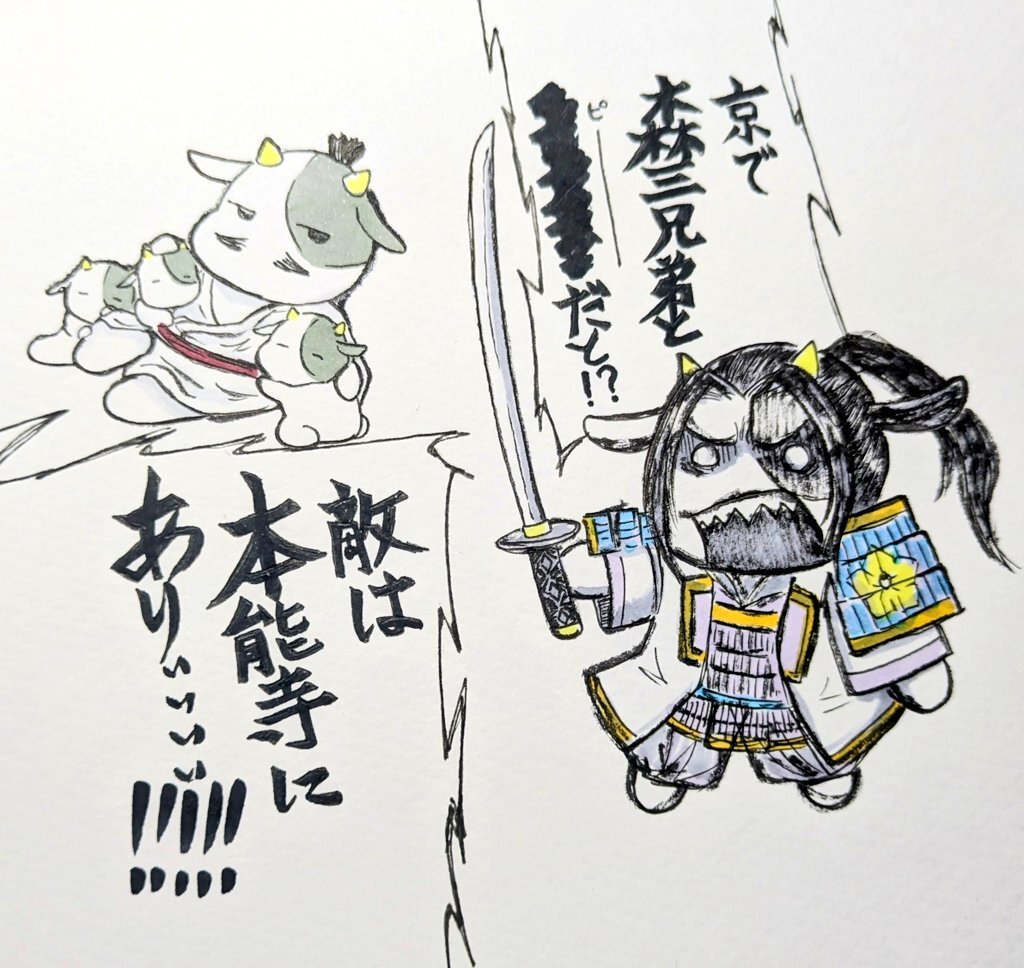 京で
森三兄弟と
ピー
だと!?
敵は
本能寺に
ありぃぃぃぃ!!!!!